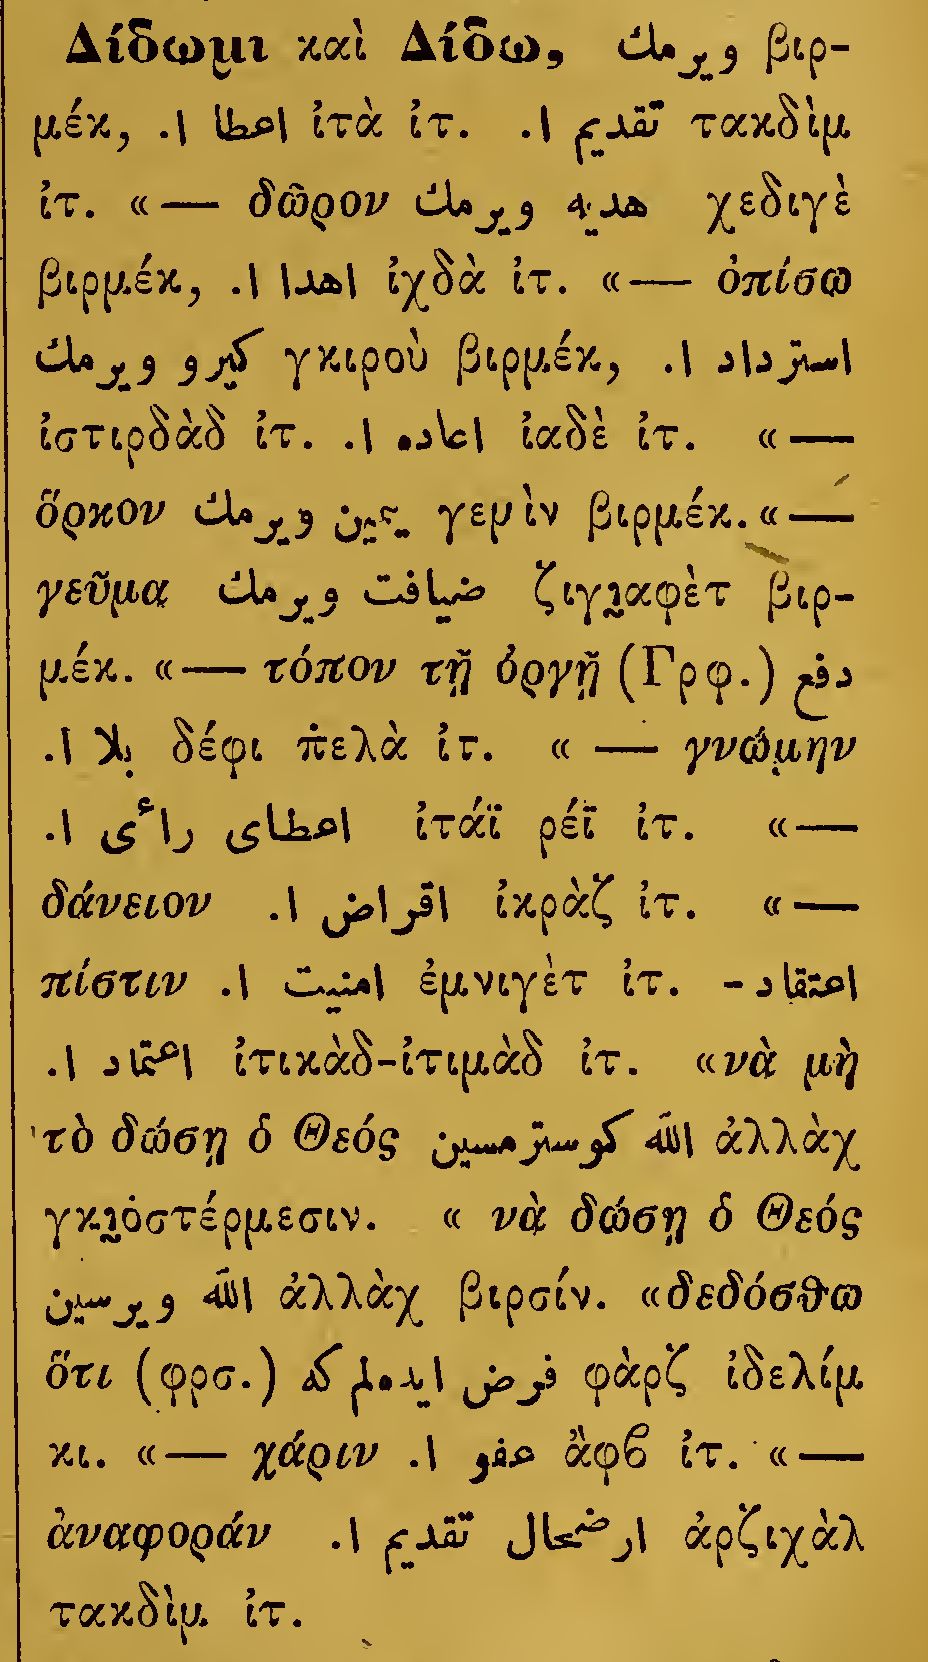 Δίδωμι καὶ Δίδω, ويرمك βιρ-
μέκ, اعطا ا. ἰτὰ ἰτ. تقديم ا. τακδὶμ
ἰτ. «— δῶρον هديه ويرمك χεδιγὲ
βιρμέκ, اهدا ا. ἰχδὰ ἰτ. «— ὀπίσω
كيرو ويرمك γκιροὺ βιρμέκ, استرداد ا.
ἰστιρδὰδ ἰτ. اعاده ا. ἰαδὲ ἰτ. «—
ὅρκον يمين ويرمك γεμὶν βιρμέκ. «—
γεῦμα ضيافت ويرمك ζιγιαφὲτ βιρ-
μέκ. «— τόπον τῇ ὀργῇ (Γρφ.) دفع
بلا ا. δέφι πελὰ ἰτ. «— γνώμην
اعطاى رأى ا. ἰτάϊ ρέϊ ἰτ. «—
δάνειον اقراض ا. ἰκρὰζ ἰτ. «—
πίστιν امنيت ا. ἐμνιγὲτ ἰτ. اعتقاد-
اعتماد ا. ἰτικὰδ-ἰτιμὰδ ἰτ. «νὰ μὴ
τὸ δώσῃ ὁ Θεός الله كوسترمسين ἀλλὰχ
γκιοστέρμεσιν. « νὰ δώσῃ ὁ Θεός
الله ويرسين ἀλλὰχ βιρσίν. «δεδόσθω
ὅτι (φρσ.) فرض ايده‌لم كه φὰρζ ἰδελίμ
κι. «— χάριν عفو ا. ἂφβ ἰτ. «—
ἀναφοράν ارضحال تقديم ا. ἀρζιχὰλ
τακδὶμ ἰτ.